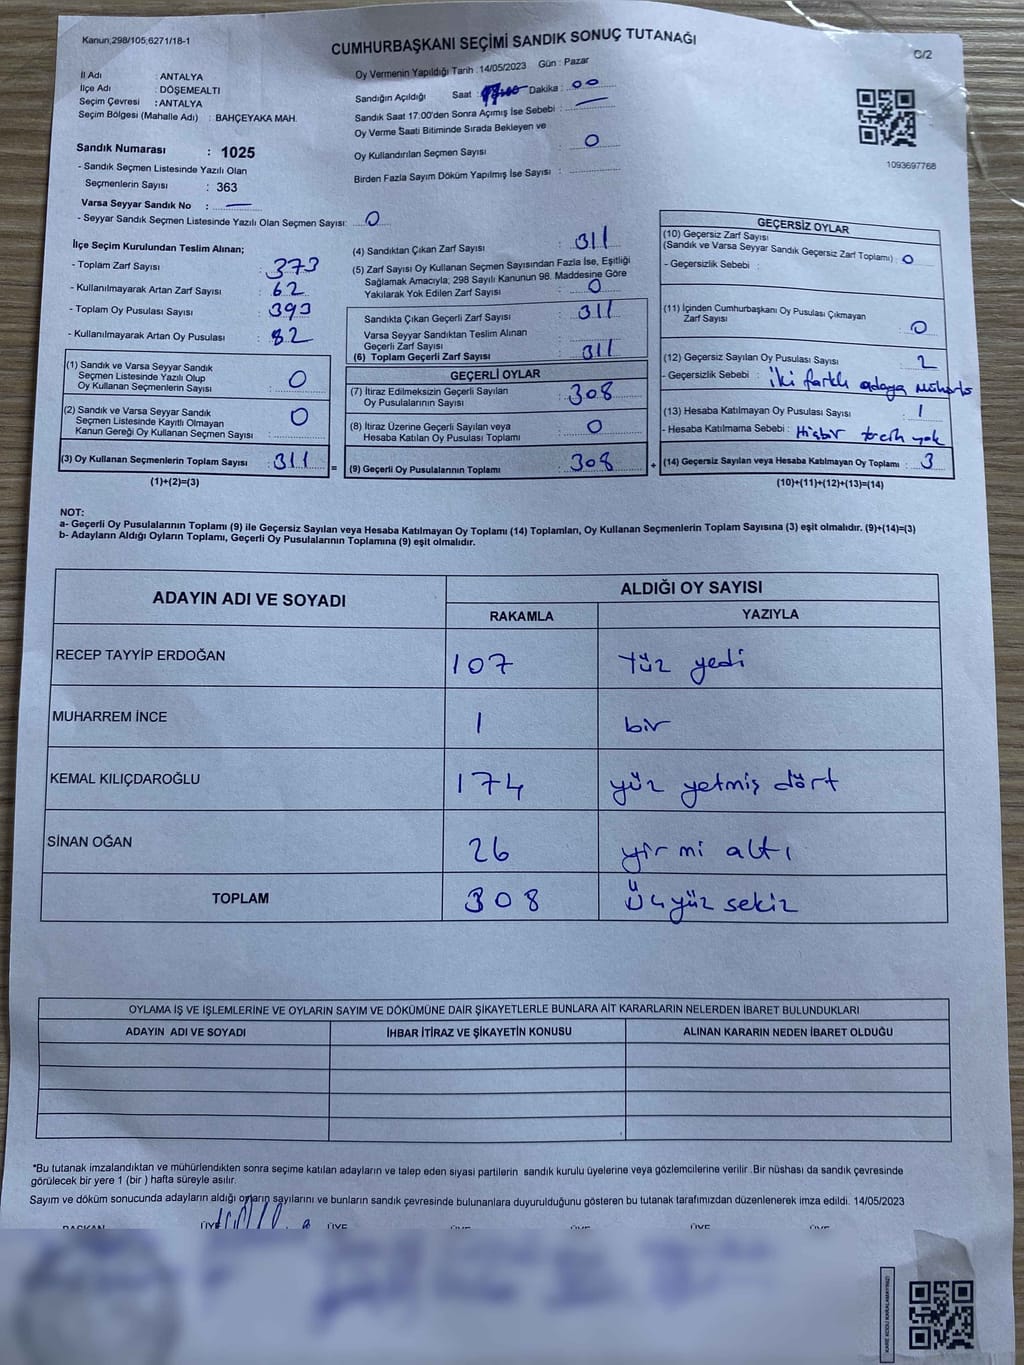 Kanun;298/105;6271/18-1
CUMHURBAŞKANI SEÇİMİ SANDIK SONUÇ TUTANAĞI
C/2
İl Adı : ANTALYA
İlçe Adı : DÖŞEMEALTI
Seçim Çevresi : ANTALYA
Seçim Bölgesi (Mahalle Adı) : BAHÇEYAKA MAH.
Sandık Numarası : 1025
- Sandık Seçmen Listesinde Yazılı Olan
Seçmenlerin Sayısı : 363
Varsa Seyyar Sandık No : —
- Seyyar Sandık Seçmen Listesinde Yazılı Olan Seçmen Sayısı: 0
Oy Vermenin Yapıldığı Tarih : 14/05/2023 Gün : Pazar
Sandığın Açıldığı Saat : Dakika : 00
Sandık Saat 17:00'den Sonra Açımış İse Sebebi : —
Oy Verme Saati Bitiminde Sırada Bekleyen ve
Oy Kullandırılan Seçmen Sayısı : 0
Birden Fazla Sayım Döküm Yapılmış İse Sayısı :
1093697768
İlçe Seçim Kurulundan Teslim Alınan;
- Toplam Zarf Sayısı : 373
- Kullanılmayarak Artan Zarf Sayısı : 62
- Toplam Oy Pusulası Sayısı : 393
- Kullanılmayarak Artan Oy Pusulası : 82
(1) Sandık ve Varsa Seyyar Sandık
Seçmen Listesinde Yazılı Olup
Oy Kullanan Seçmenlerin Sayısı : 0
(2) Sandık ve Varsa Seyyar Sandık
Seçmen Listesinde Kayıtlı Olmayan
Kanun Gereği Oy Kullanan Seçmen Sayısı : 0
(3) Oy Kullanan Seçmenlerin Toplam Sayısı : 311
(1)+(2)=(3)
(4) Sandıktan Çıkan Zarf Sayısı : 311
(5) Zarf Sayısı Oy Kullanan Seçmen Sayısından Fazla İse, Eşitliği
Sağlamak Amacıyla, 298 Sayılı Kanunun 98. Maddesine Göre
Yakılarak Yok Edilen Zarf Sayısı : 0
Sandıkta Çıkan Geçerli Zarf Sayısı : 311
Varsa Seyyar Sandıktan Teslim Alınan
Geçerli Zarf Sayısı
(6) Toplam Geçerli Zarf Sayısı : 311
GEÇERLİ OYLAR
(7) İtiraz Edilmeksizin Geçerli Sayılan
Oy Pusulalarının Sayısı : 308
(8) İtiraz Üzerine Geçerli Sayılan veya
Hesaba Katılan Oy Pusulası Toplamı : 0
= (9) Geçerli Oy Pusulalarının Toplamı : 308
GEÇERSİZ OYLAR
(10) Geçersiz Zarf Sayısı
(Sandık ve Varsa Seyyar Sandık Geçersiz Zarf Toplamı) : 0
- Geçersizlik Sebebi :
(11) İçinden Cumhurbaşkanı Oy Pusulası Çıkmayan
Zarf Sayısı : 0
(12) Geçersiz Sayılan Oy Pusulası Sayısı : 2
- Geçersizlik Sebebi : iki farklı adaya
(13) Hesaba Katılmayan Oy Pusulası Sayısı : 1
- Hesaba Katılmama Sebebi : Hiçbir tercih yok
+ (14) Geçersiz Sayılan veya Hesaba Katılmayan Oy Toplamı : 3
(10)+(11)+(12)+(13)=(14)
NOT:
a- Geçerli Oy Pusulalarının Toplamı (9) ile Geçersiz Sayılan veya Hesaba Katılmayan Oy Toplamı (14) Toplamları, Oy Kullanan Seçmenlerin Toplam Sayısına (3) eşit olmalıdır. (9)+(14)=(3)
b- Adayların Aldığı Oyların Toplamı, Geçerli Oy Pusulalarının Toplamına (9) eşit olmalıdır.
ADAYIN ADI VE SOYADI ALDIĞI OY SAYISI
RAKAMLA YAZIYLA
RECEP TAYYİP ERDOĞAN 107 Yüz yedi
MUHARREM İNCE 1 bir
KEMAL KILIÇDAROĞLU 174 yüz yetmiş dört
SİNAN OĞAN 26 yirmi altı
TOPLAM 308 Üçyüz sekiz
OYLAMA İŞ VE İŞLEMLERİNE VE OYLARIN SAYIM VE DÖKÜMÜNE DAİR ŞİKAYETLERLE BUNLARA AİT KARARLARIN NELERDEN İBARET BULUNDUKLARI
ADAYIN ADI VE SOYADI İHBAR İTİRAZ VE ŞİKAYETİN KONUSU ALINAN KARARIN NEDEN İBARET OLDUĞU
*Bu tutanak imzalandıktan ve mühürlendikten sonra seçime katılan adayların ve talep eden siyasi partilerin sandık kurulu üyelerine veya gözlemcilerine verilir .Bir nüshası da sandık çevresinde
görülecek bir yere 1 (bir ) hafta süreyle asılır.
Sayım ve döküm sonucunda adayların aldığı oyların sayılarını ve bunların sandık çevresinde bulunanlara duyurulduğunu gösteren bu tutanak tarafımızdan düzenlenerek imza edildi. 14/05/2023
BAŞKAN ÜYE ÜYE ÜYE ÜYE ÜYE ÜYE